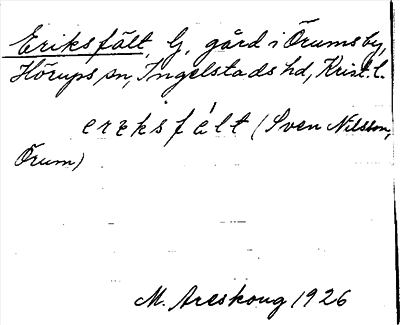 Eriksfält, G, gård i Örums by,
Hörups sn, Ingelstads hd, Krist. l.
erıksfált (Sven Nilsson,
Örum)
M. Areskoug 1926